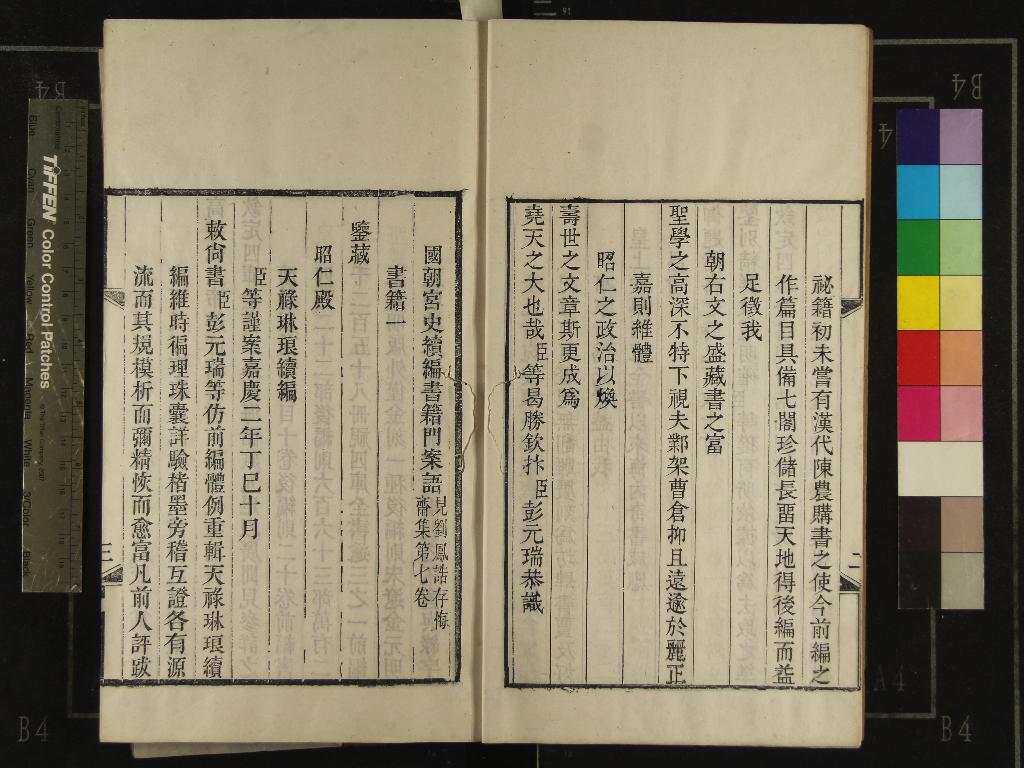 祕籍初未嘗有漢代陳農購書之使今前編之
作篇目具備七閣珍儲長畱天地得後編而益
足徵我
朝右文之盛藏書之富
聖學之高深不特下視夫鄴架曹倉抑且遠逾於麗正
嘉則維體
昭仁之政治以煥
壽世之文章斯更成爲
堯天之大也哉臣等曷勝欽抃臣彭元瑞恭識
國朝宮史續編書籍門案語見劉鳳誥存悔
齋集第七卷
書籍一
鑒藏
昭仁殿
天祿琳琅續編
臣等謹案嘉慶二年丁巳十月
敕尙書臣彭元瑞等仿前編體例重輯天祿琳琅續
編維時徧理珠囊詳驗楮墨旁稽互證各有源
流而其規模析而彌精恢而愈富凡前人評跋
三
TIFFEN Color Control Patches
Blue
Cyan
Green
Yellow
Red
Magenta
White
3/Color
Black
B4
B4
B4
B4
A4